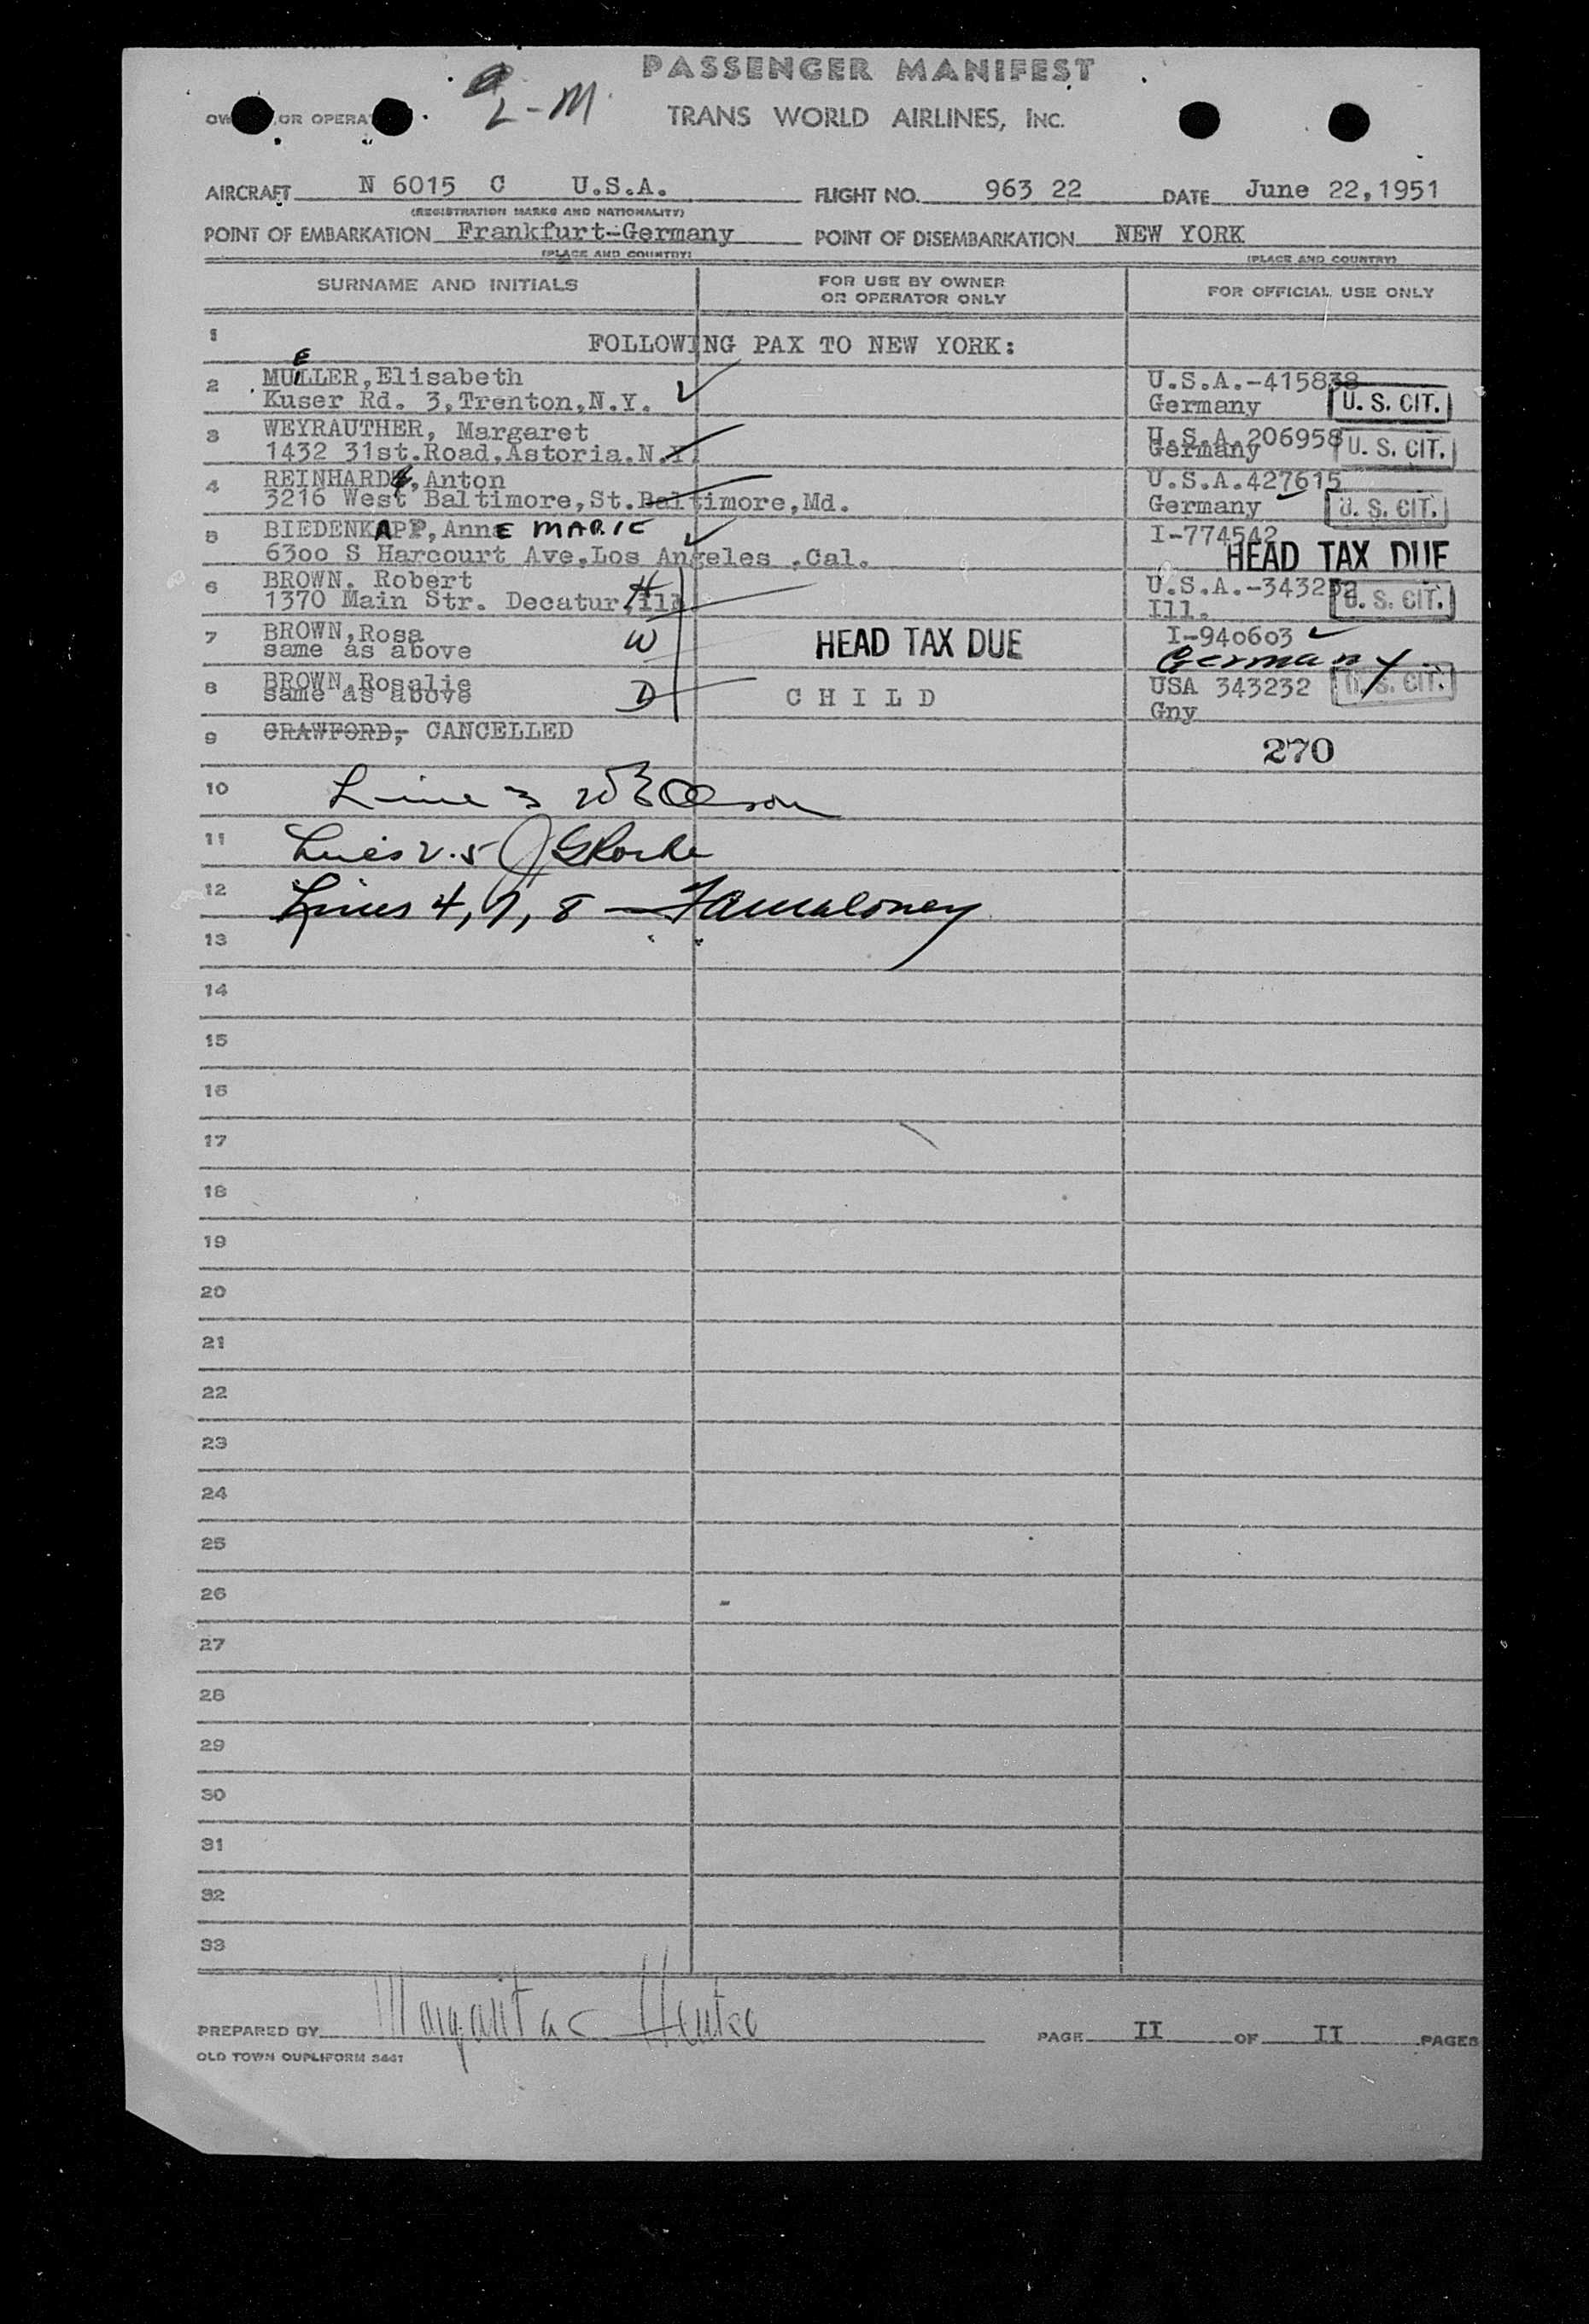 PASSENGER MANIFEST
L-M
OR OPERA
TRANS WORLD AIRLINES, INC.
AIRCRAFT N 6015 C U.S.A. FLIGHT NO. 963 22 DATE June 22,1951
(REGISTRATION MARKS AND NATIONALITY)
POINT OF EMBARKATION Frankfurt-Germany POINT OF DISEMBARKATION NEW YORK
(PLACE AND COUNTRY) (PLACE AND COUNTRY)
SURNAME AND INITIALS FOR USE BY OWNER OR OPERATOR ONLY FOR OFFICIAL USE ONLY
1 FOLLOWING PAX TO NEW YORK:
2 MUELLER,Elisabeth U.S.A.-415838
Kuser Rd. 3,Trenton,N.Y. Germany U. S. CIT.
3 WEYRAUTHER, Margaret U.S.A.206958
1432 31st.Road,Astoria.N.Y. Germany U. S. CIT.
4 REINHARD, Anton U.S.A.427615
3216 West Baltimore,St.Baltimore,Md. Germany U. S. CIT.
5 BIEDENKAPP,ANNE MARIE I-774542
6300 S Harcourt Ave,Los Angeles ,Cal. HEAD TAX DUE
6 BROWN, Robert H U.S.A.-343232
1370 Main Str. Decatur,Ill Ill. U. S. CIT.
7 BROWN,Rosa W HEAD TAX DUE I-940603
same as above Germany
8 BROWN,Rosalie D CHILD USA 343232 U. S. CIT.
same as above Gny
9 CRAWFORD, CANCELLED 270
10 Line 3
11 Lines 2.5
12 Lines 4, 7, 8 — FAMaloney
13
14
15
16
17
18
19
20
21
22
23
24
25
26
27
28
29
30
31
32
33
PREPARED BY Margarita PAGE II OF II PAGES
OLD TOWN DUPLIFORM 3441